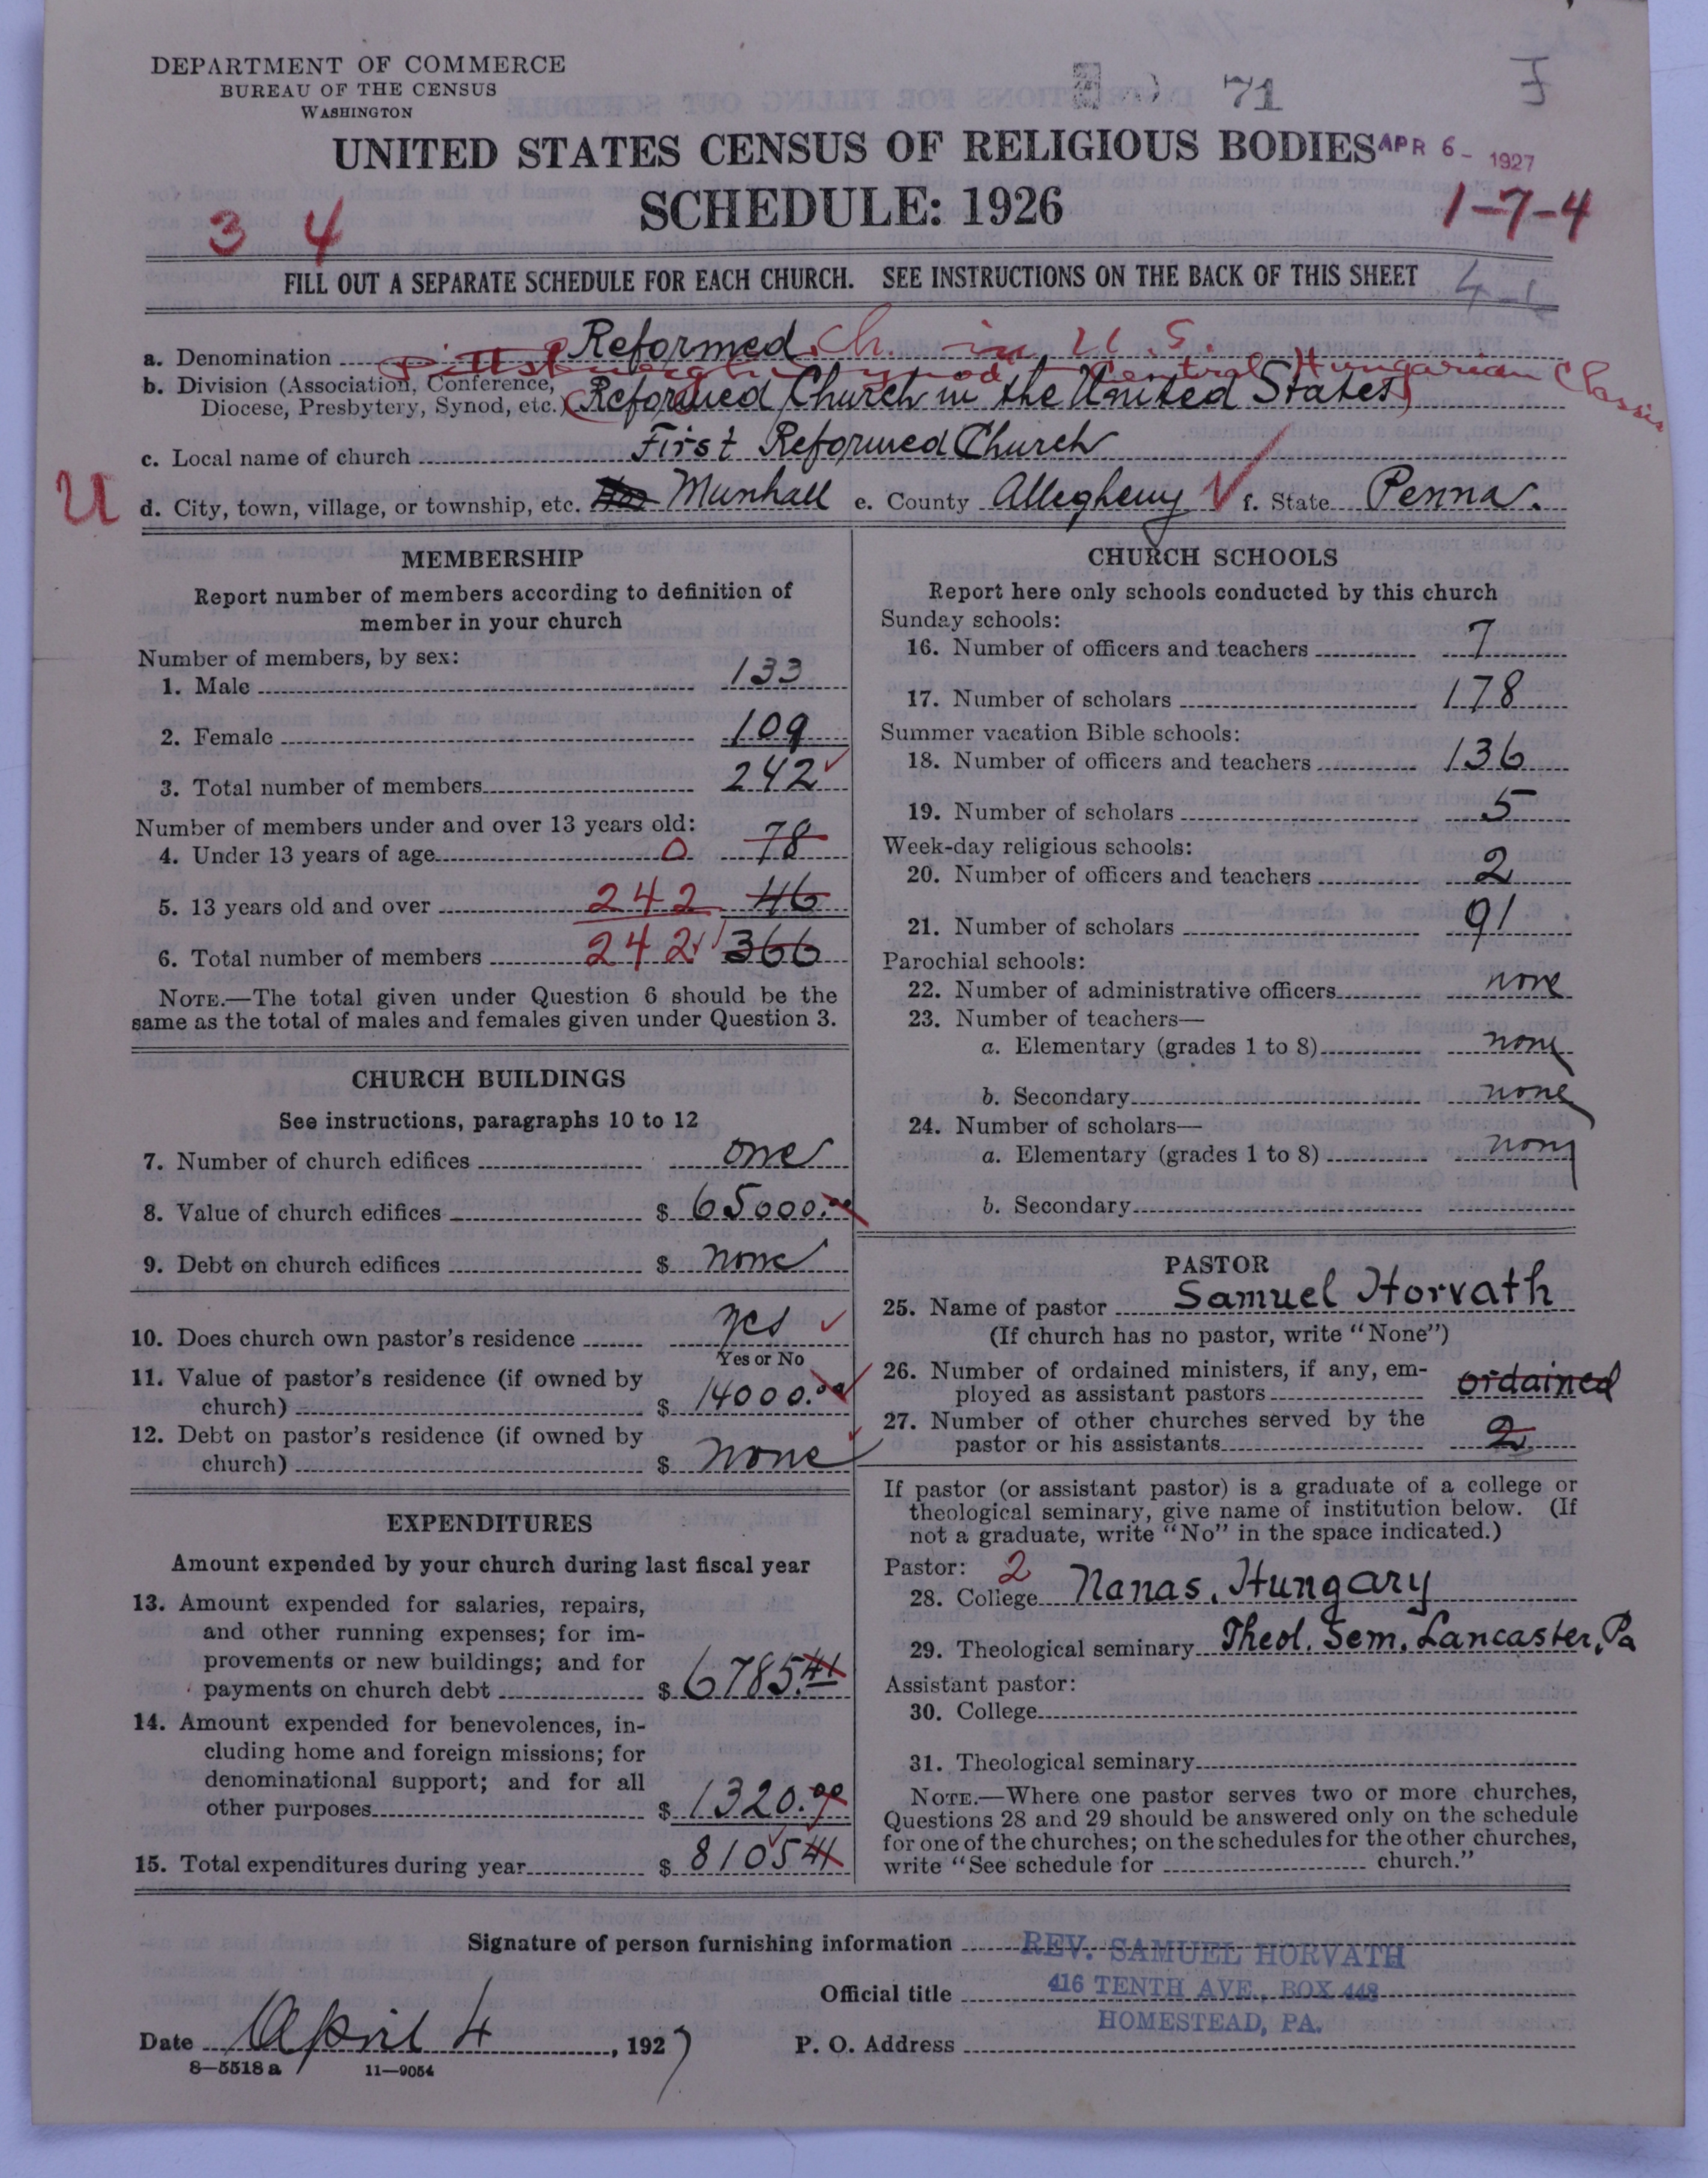 DEPARTMENT OF COMMERCE
BUREAU OF THE CENSUS
WASHINGTON
71
UNITED STATES CENSUS OF RELIGIOUS BODIES
APR 6 - 1927
SCHEDULE: 1926
3 4
1-7-4
FILL OUT A SEPARATE SCHEDULE FOR EACH CHURCH. SEE INSTRUCTIONS ON THE BACK OF THIS SHEET
a. Denomination Reformed Ch. in U. S.
Pittsburgh Synod - Central Hungarian Classis
b. Division (Association, Conference,
Diocese, Presbytery, Synod, etc.) (Reformed Church in the United States)
c. Local name of church First Reformed Church
U
d. City, town, village, or township, etc. Munhall e. County Allegheny f. State Penna.
MEMBERSHIP
Report number of members according to definition of
member in your church
Number of members, by sex:
1. Male 133
2. Female 109
3. Total number of members 242
Number of members under and over 13 years old:
4. Under 13 years of age 0 78
5. 13 years old and over 242 46
6. Total number of members 242 366
NOTE.—The total given under Question 6 should be the
same as the total of males and females given under Question 3.
CHURCH BUILDINGS
See instructions, paragraphs 10 to 12
7. Number of church edifices one
8. Value of church edifices $ 65000.00
9. Debt on church edifices $ none
10. Does church own pastor's residence yes
Yes or No
11. Value of pastor's residence (if owned by
church) $ 14000.00
12. Debt on pastor's residence (if owned by
church) $ none
EXPENDITURES
Amount expended by your church during last fiscal year
13. Amount expended for salaries, repairs,
and other running expenses; for im-
provements or new buildings; and for
payments on church debt $ 6785.41
14. Amount expended for benevolences, in-
cluding home and foreign missions; for
denominational support; and for all
other purposes $ 1320.00
15. Total expenditures during year $ 8105 41
CHURCH SCHOOLS
Report here only schools conducted by this church
Sunday schools:
16. Number of officers and teachers 7
17. Number of scholars 178
Summer vacation Bible schools:
18. Number of officers and teachers 136
19. Number of scholars 5
Week-day religious schools:
20. Number of officers and teachers 2
21. Number of scholars 91
Parochial schools:
22. Number of administrative officers none
23. Number of teachers—
a. Elementary (grades 1 to 8) none
b. Secondary none
24. Number of scholars—
a. Elementary (grades 1 to 8) none
b. Secondary
PASTOR
25. Name of pastor Samuel Horvath
(If church has no pastor, write "None")
26. Number of ordained ministers, if any, em-
ployed as assistant pastors ordained
27. Number of other churches served by the
pastor or his assistants 2
If pastor (or assistant pastor) is a graduate of a college or
theological seminary, give name of institution below. (If
not a graduate, write "No" in the space indicated.)
Pastor: 2
28. College Nanas, Hungary
29. Theological seminary Theol. Sem. Lancaster, Pa
Assistant pastor:
30. College
31. Theological seminary
NOTE.—Where one pastor serves two or more churches,
Questions 28 and 29 should be answered only on the schedule
for one of the churches; on the schedules for the other churches,
write "See schedule for church."
Signature of person furnishing information REV. SAMUEL HORVATH
Official title 416 TENTH AVE., BOX 448
HOMESTEAD, PA.
Date April 4, 1927 P. O. Address
8—5518 a 11—9054